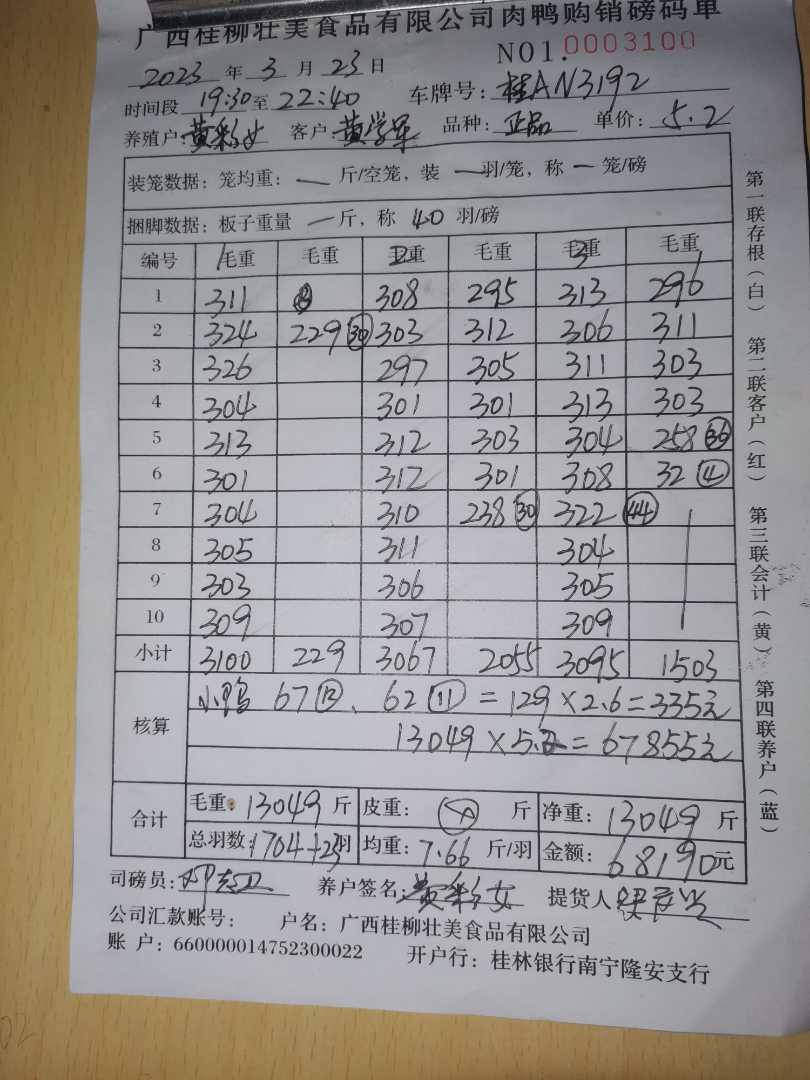 广西桂柳壮美食品有限公司肉鸭购销磅码单
NO1.0003100
2023 年 3 月 23 日
时间段 19:30 至 22:40 车牌号: 桂AN3192
养殖户: 黄彩女 客户: 黄学军 品种: 正品 单价: 5.2
装笼数据: 笼均重: — 斤/空笼, 装 — 羽/笼, 称 — 笼/磅
捆脚数据: 板子重量 — 斤, 称 40 羽/磅
编号 1毛重 毛重 2毛重 毛重 3毛重 毛重
1 311 308 295 313 296
2 324 229 ㉚ 303 312 306 311
3 326 297 305 311 303
4 304 301 301 313 303
5 313 312 303 304 258 ㊱
6 301 312 301 308 32 ④
7 304 310 238 ㉚ 322 ㊹
8 305 311 304
9 303 306 305
10 309 307 309
小计 3100 229 3067 2055 3095 1503
核算 小鸭 67 ⑫、62 ⑪ = 129 × 2.6 = 335元
13049 × 5.2 = 67855元
合计 毛重: 13049 斤 皮重: 斤 净重: 13049 斤
总羽数: 1704+23 羽 均重: 7.66 斤/羽 金额: 68190元
司磅员: 养户签名: 黄彩女 提货人
公司汇款账号: 户名: 广西桂柳壮美食品有限公司
账 户: 660000014752300022 开户行: 桂林银行南宁隆安支行
第一联存根(白) 第二联客户(红) 第三联会计(黄) 第四联养户(蓝)
02